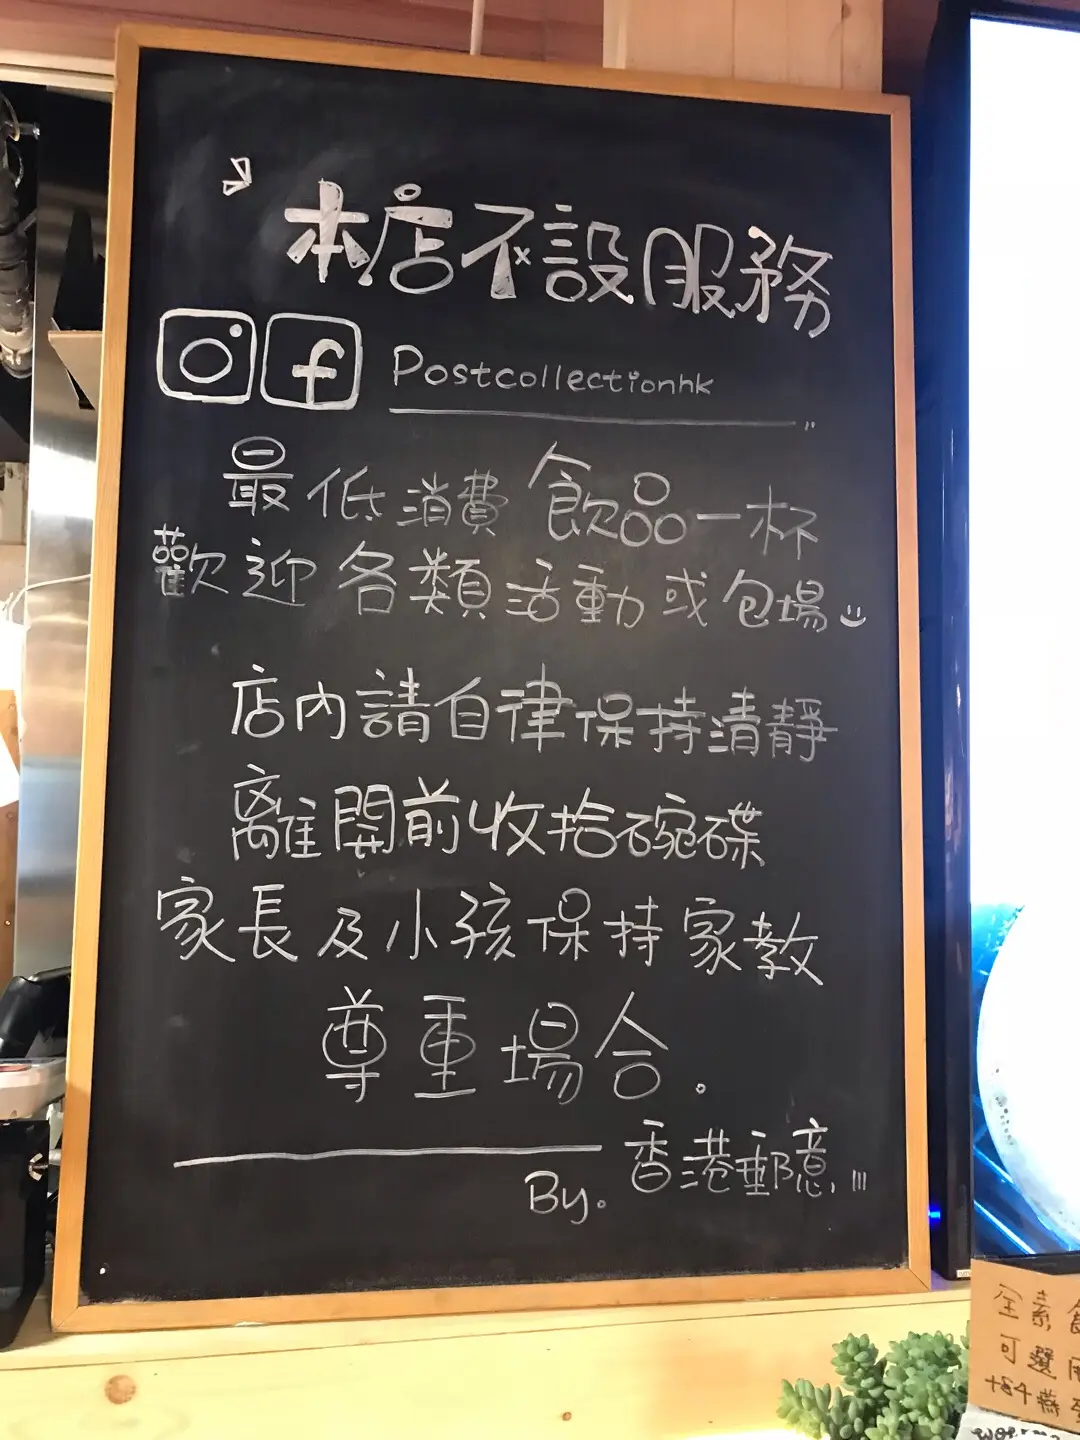 本店不設服務
f Postcollectionhk
最低消費 飲品一杯
歡迎 各類活動或包場
店內請自律保持清靜
離開前收拾碗碟
家長及小孩保持家教
尊重場合。
By. 香港郵意
全素
可選
+$4燕